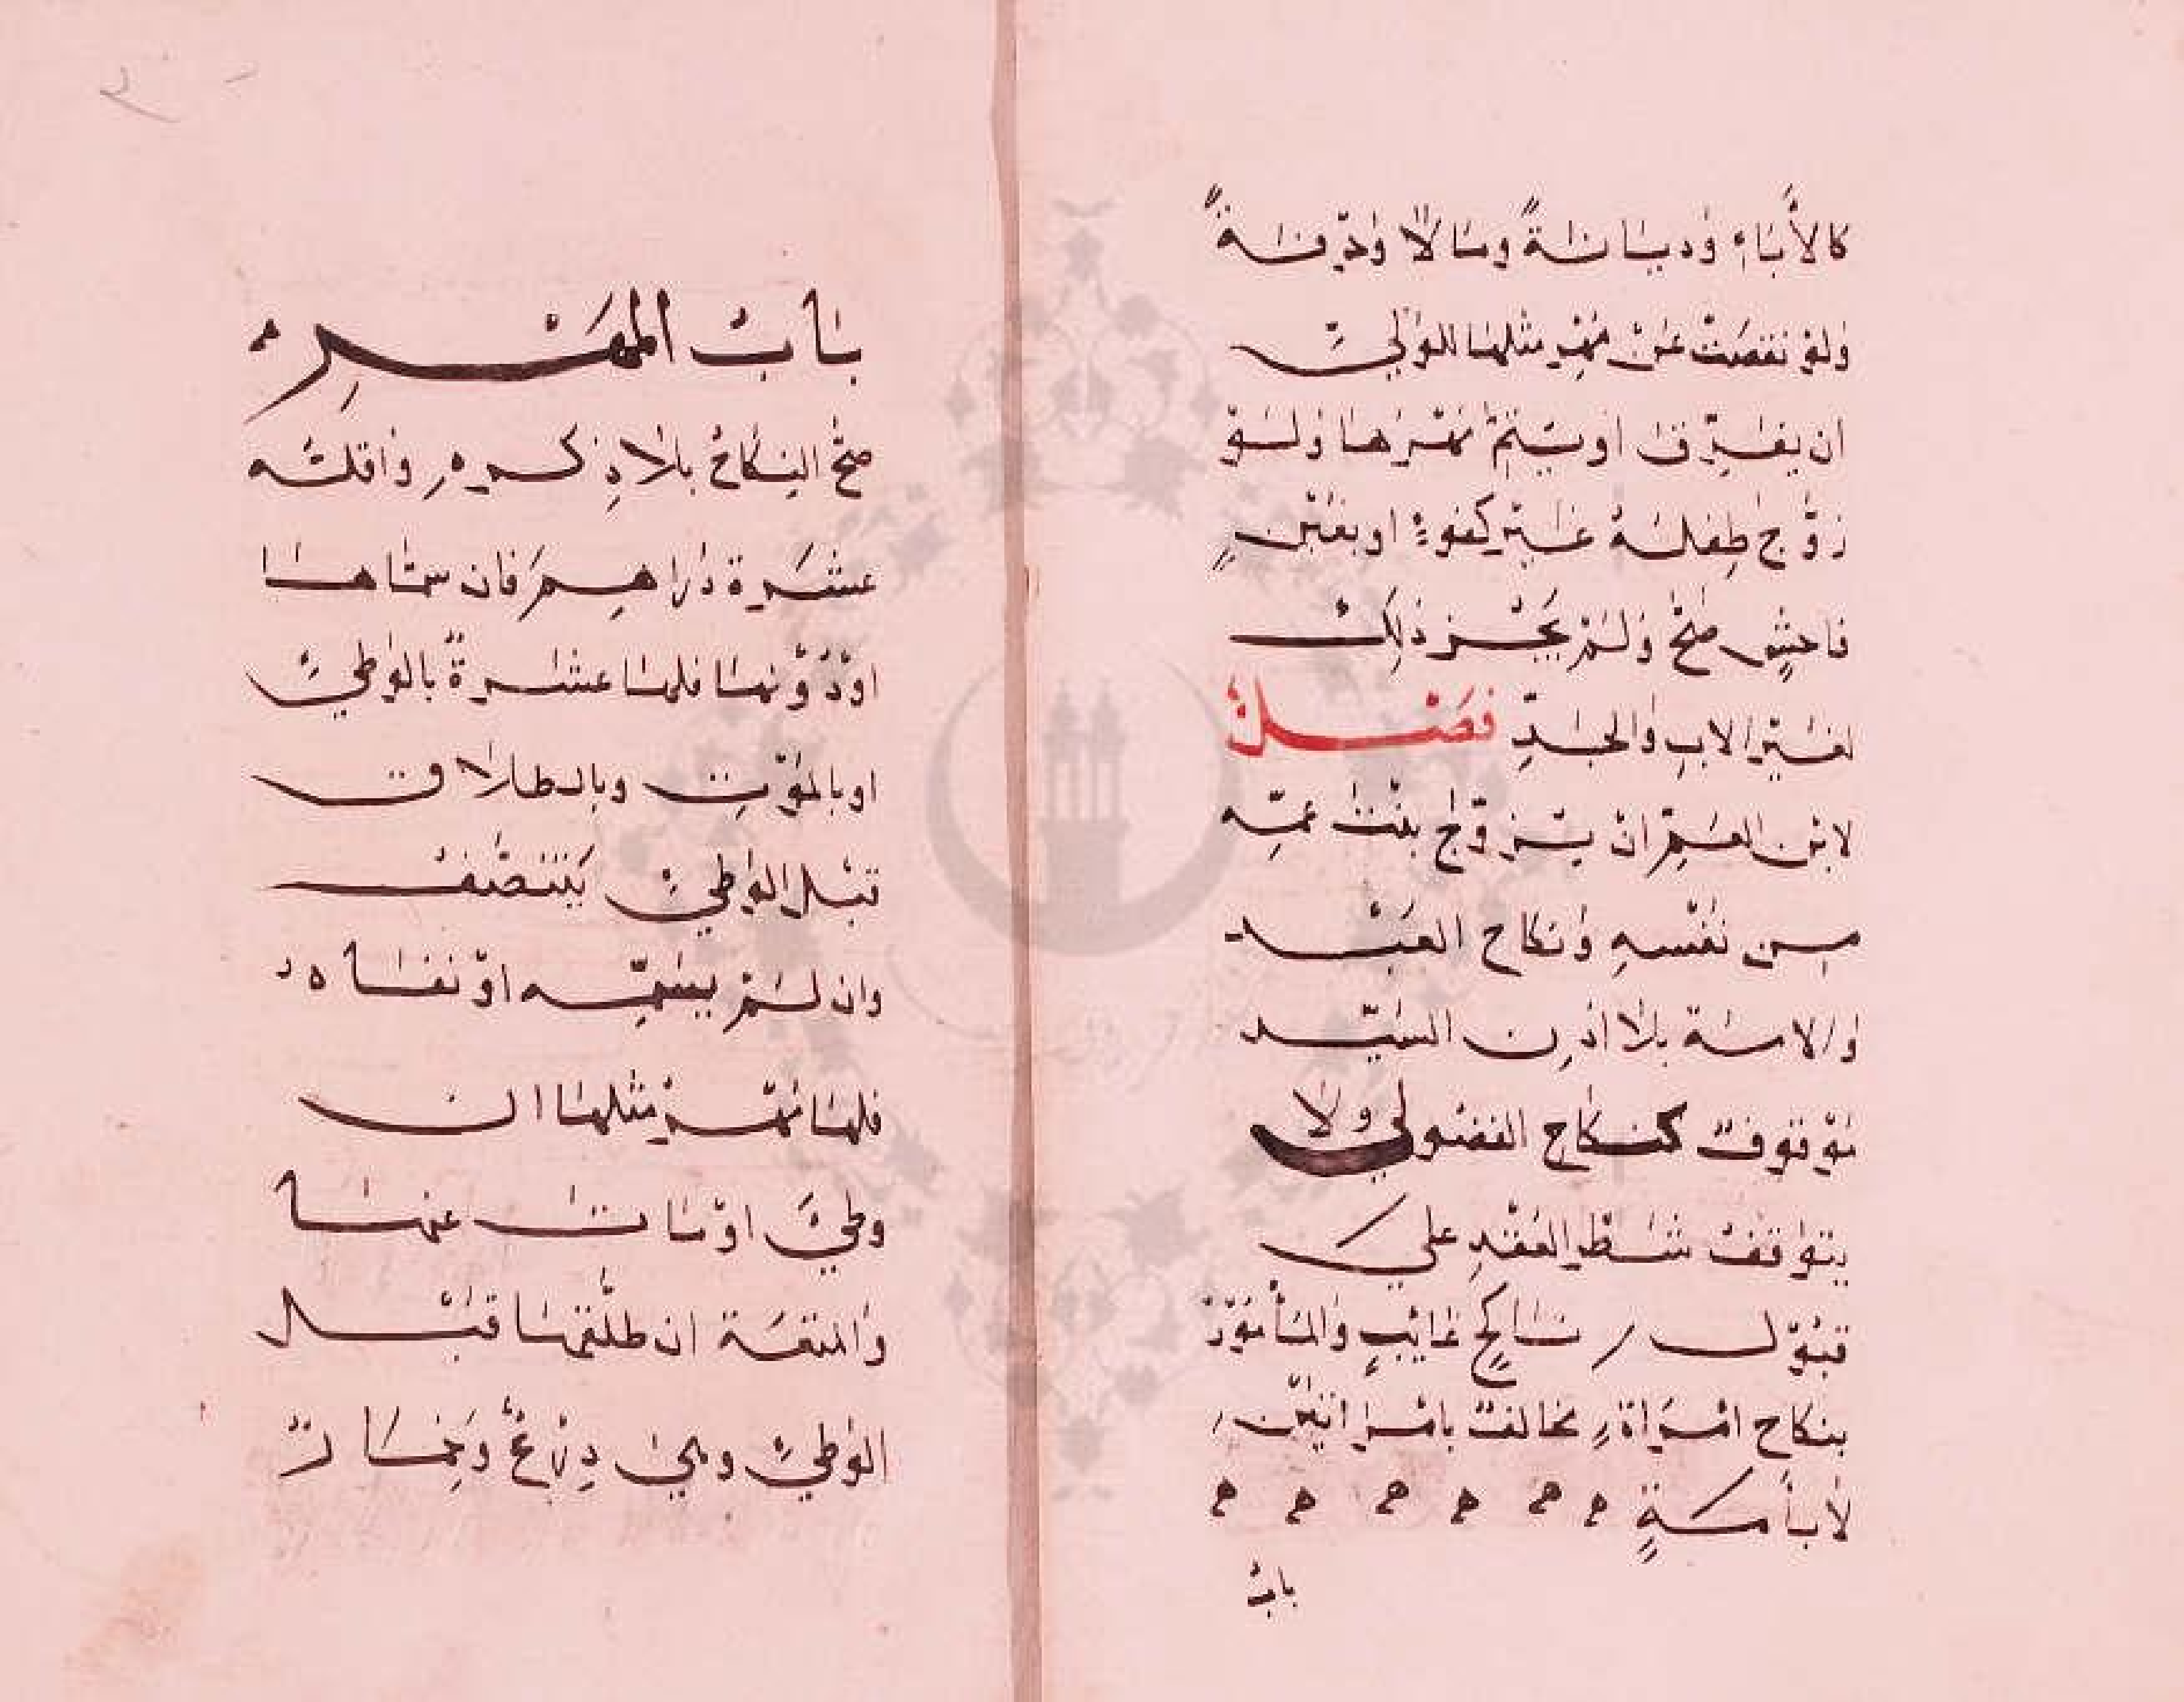 كالأباء وديانة ومالا وحرفة
ولو نقصت عن مهر مثلها للولي
ان يفرق او يتم مهرها ولو
زوج طفله غير كفوء او بغبن
فاحش صح ولم يجز ذلك
لغير الاب والجد فصل
لابن العم ان يزوج بنت عمه
من نفسه ونكاح العبد
والامة بلا اذن السيد
موقوف كنكاح الفضولي ولا
يتوقف شطر العقد على
قبول ناكح غايب والمأمور
بنكاح امراة مخالف بامراتين
لا بأمة
باب
باب المهر
صح النكاح بلا ذكره واقله
عشرة دراهم فان سماها
او دونها فلها عشرة بالوطئ
او بالموت وبالطلاق
قبل الوطئ يتنصف
وان لم يسمه او نفاه
فلها مهر مثلها ان
وطئ او مات عنها
والمتعة ان طلقها قبل
الوطئ وهي درع وخمار